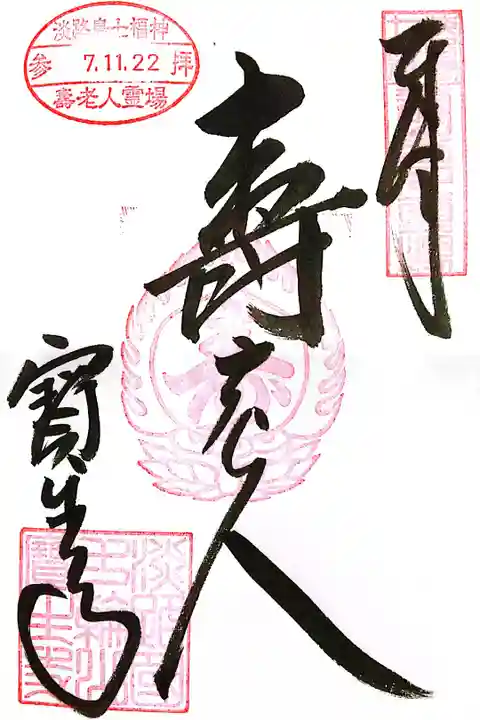 淡路島七福神
参 7.11.22 拝
壽老人霊場
壽老人
寶生寺
淡路國
玉林山
寶生寺